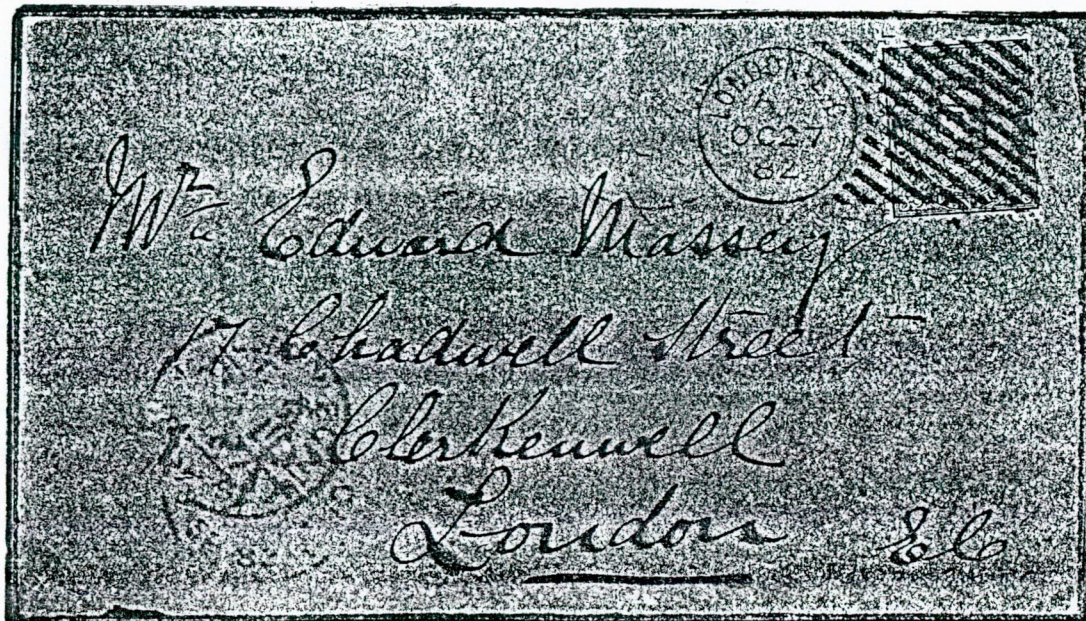 LONDON E.C
OC 27
82
Mr. Edward Massey
17 Chadwell Street
Clerkenwell
London E C